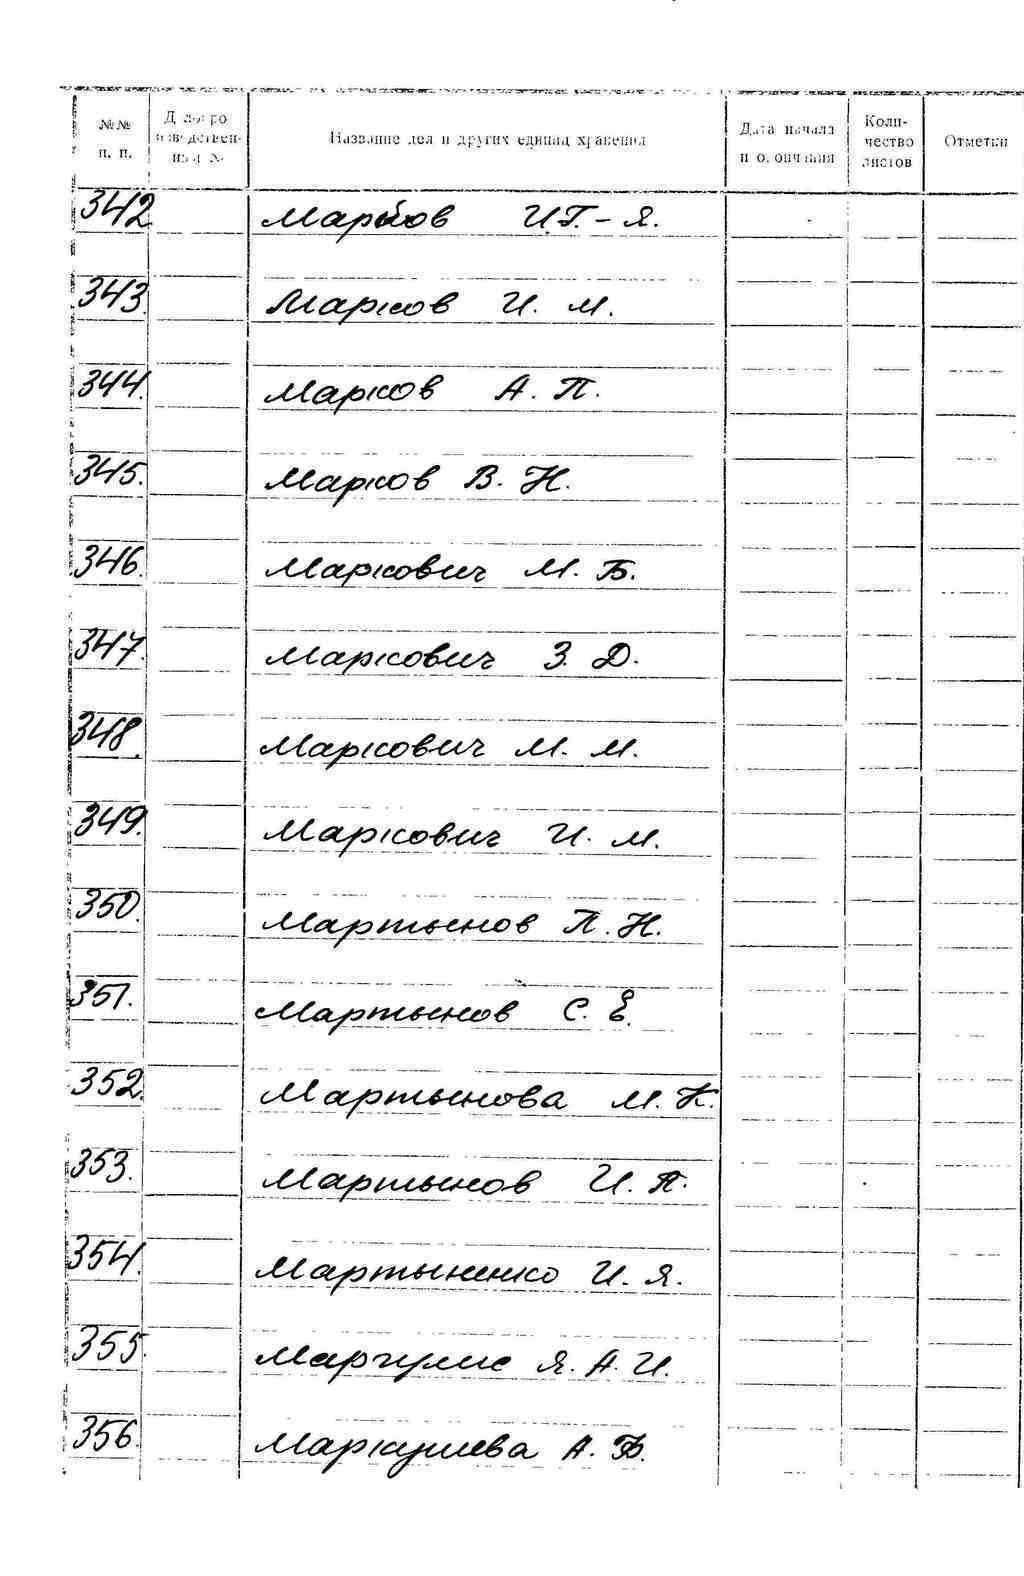 №№ п. п.
Название дел и других единиц хранения
Дата начала и окончания
Количество листов
Отметки
342 И.Г.-Я.
343. Марков И. М.
344. Марков А. П.
345. Марков В. Н.
346. Маркович М. Б.
347. Маркович З. Д.
348. Маркович М. М.
349. Маркович И. М.
350. Мартынов П. Н.
351. Мартынов С. Е.
352. Мартынова М. К.
353. Мартынов И. П.
354. Мартыненко И. Я.
355. Маргулис Я. А. И.
356. А. Ф.